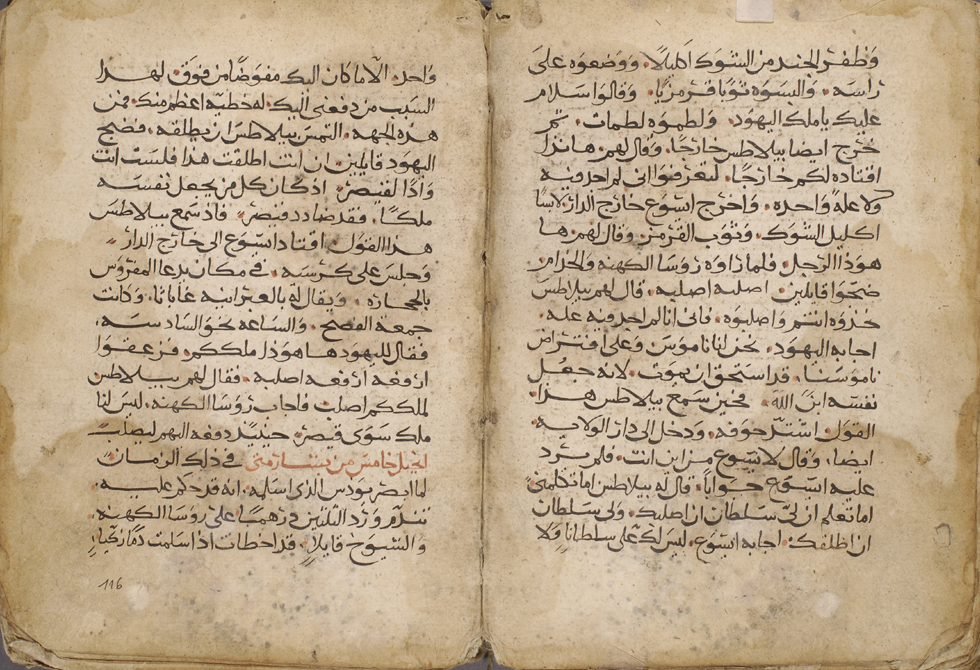 وظفر الجند من الشوك اكليلا. ووضعوه على
راسه. والبسوه ثوبا قرمزيا. وقالوا سلام
عليك يا ملك اليهود. ولطموه لطمات. ثم
خرج ايضا بيلاطس خارجا. وقال لهم هانذا
اقتاده لكم خارجا. لتعرفوا اني لم اجد فيه
ولا علة واحده. واخرج ايسوع خارج الدار لابسا
اكليل الشوك. وثوب القرمز. وقال لهم ها
هوذا الرجل. فلما ذاوه روسا الكهنه والخدام
ضجوا قايلين. اصلبه اصلبه. قال لهم بيلاطس
خذوه انتم واصلبوه. فاني انا لم اجد فيه عله.
اجابه اليهود. نحن لنا ناموس. وعلى افتراض
ناموسنا. قد استحق ان يموت. لانه جعل
نفسه ابن الله. فحين سمع بيلاطس هذا
القول. اشتد خوفه. ودخل الى دار الولايه.
ايضا. وقال لايسوع من اين انت. فلم يرد
عليه ايسوع جوابا. قال له بيلاطس اما تكلمني
اما تعلم ان لي سلطان ان اصلبك. ولي سلطان
ان اطلقك. اجابه ايسوع. ليس لك علي سلطانا ولا
واحد. الا ما كان اليك مفوضا من فوق. لهذا
السبب من دفعني اليك. له خطيه اعظم منك. فمن
هذه الجهه. التمس بيلاطس ان يطلقه. فضج
اليهود قايلين. ان انت اطلقت هذا فلست انت
وادا لقيصر. اذ كان كل من يجعل نفسه
ملكا. فقد ضادد قيصر. فاذ سمع بيلاطس
هذا القول. اقتاد ايسوع الى خارج الدار
وجلس على كرسيه. في مكان يدعا المفروش
بالحجاره. ويقال له بالعبرانيه غاباثا. وكانت
جمعة الفصح. والساعه نحو السادسه.
فقال لليهود ها هوذا ملككم. فزعقوا
ارفعه ارفعه اصلبه. فقال لهم بيلاطس
لملككم اصلب. فاجاب روسا الكهنه. ليس لنا
ملك سوى قيصر. حينيذ دفعه اليهم ليصلب
انجيل خامس من بشارة متى في ذلك الزمان
لما ابصر يودس الذي اسلمه. انه قد حكم عليه.
تندم ورد الثلثين درهما. على روسا الكهنه.
والشيوخ قايلا. قد اخطات اذ اسلمت دما زكيا
116